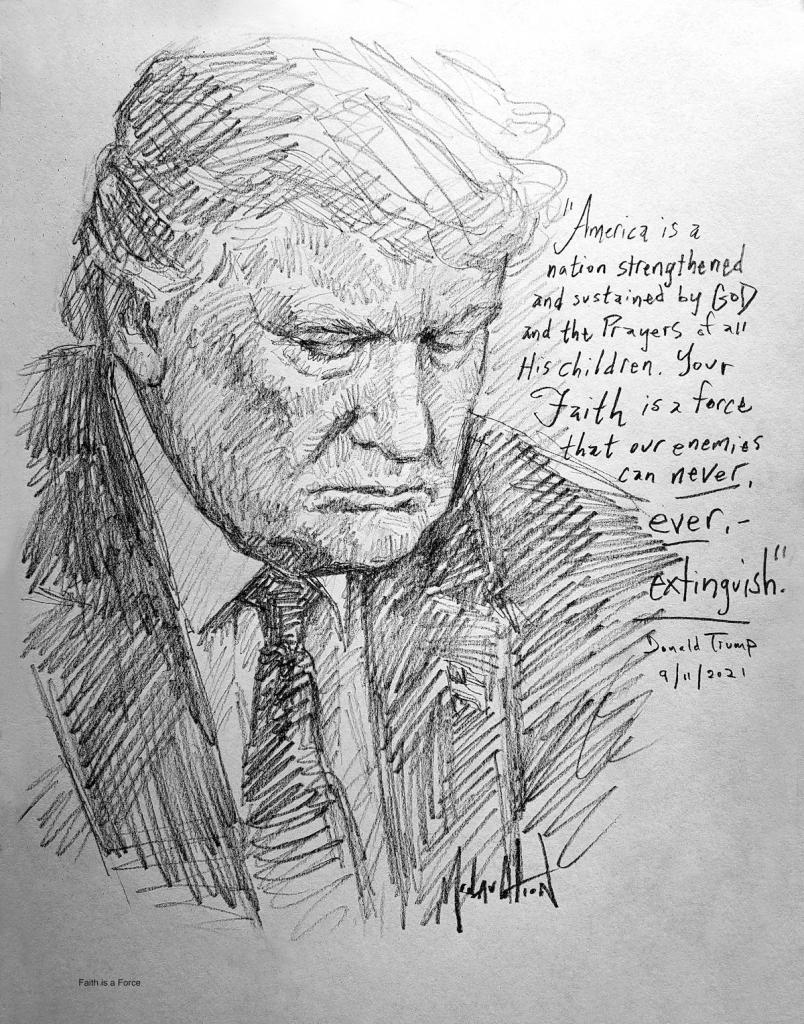 "America is a
nation strengthened
and sustained by GOD
and the Prayers of all
His children. Your
Faith is a force
that our enemies
can never,
ever,-
extinguish."
Donald Trump
9/11/2021
Faith is a Force